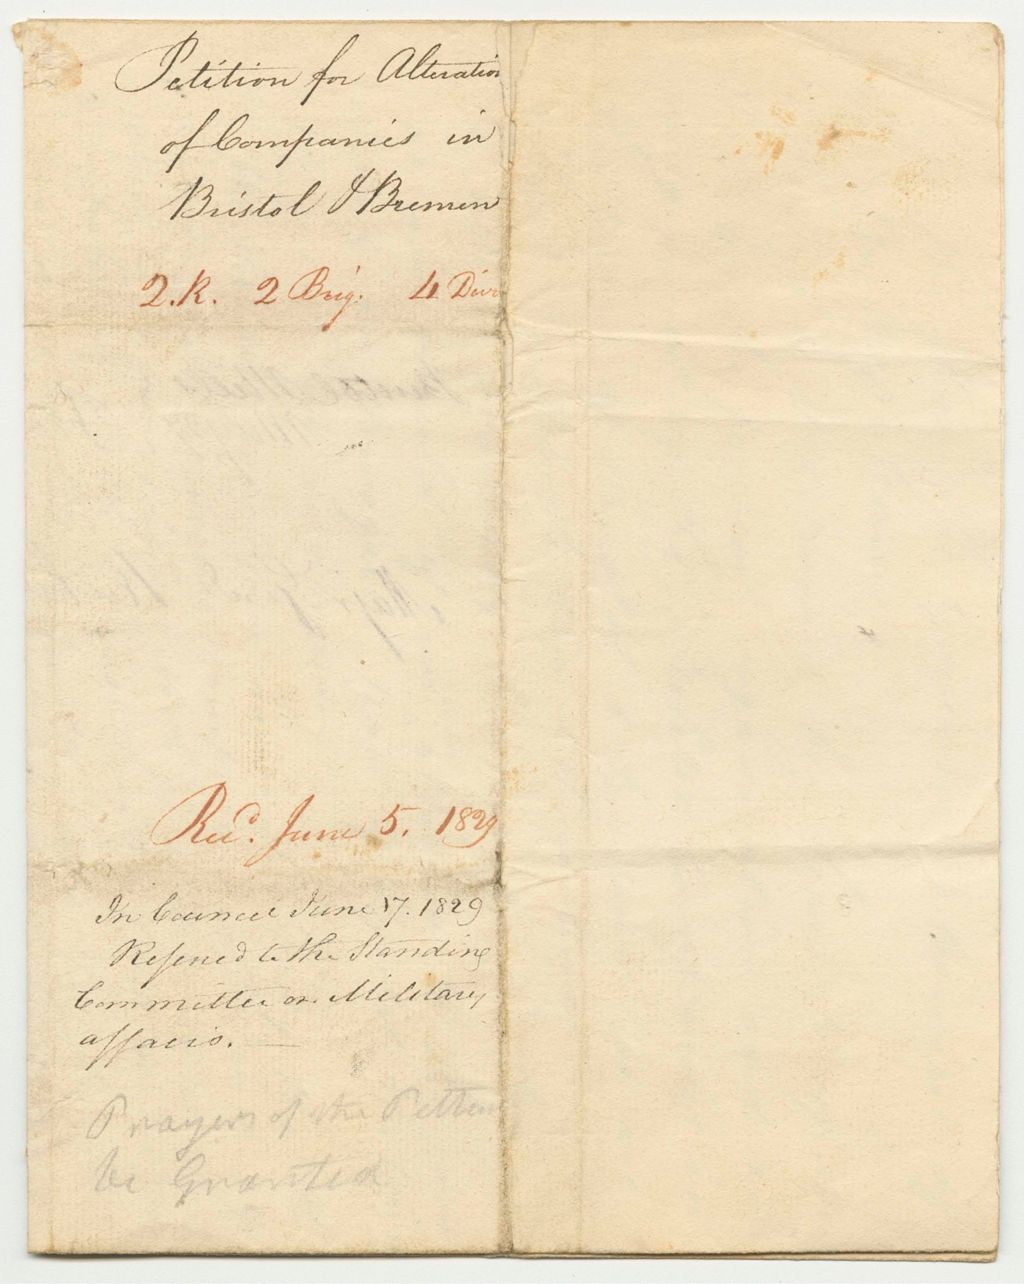 Petition for Alteration
of Companies in
Bristol & Bremen
2.R. 2 Brig. 4 Div
Recd. June 5. 1829
In Council June 17. 1829
Referred to the Standing
Committee on Military
affairs.
Prayers of the
be Granted